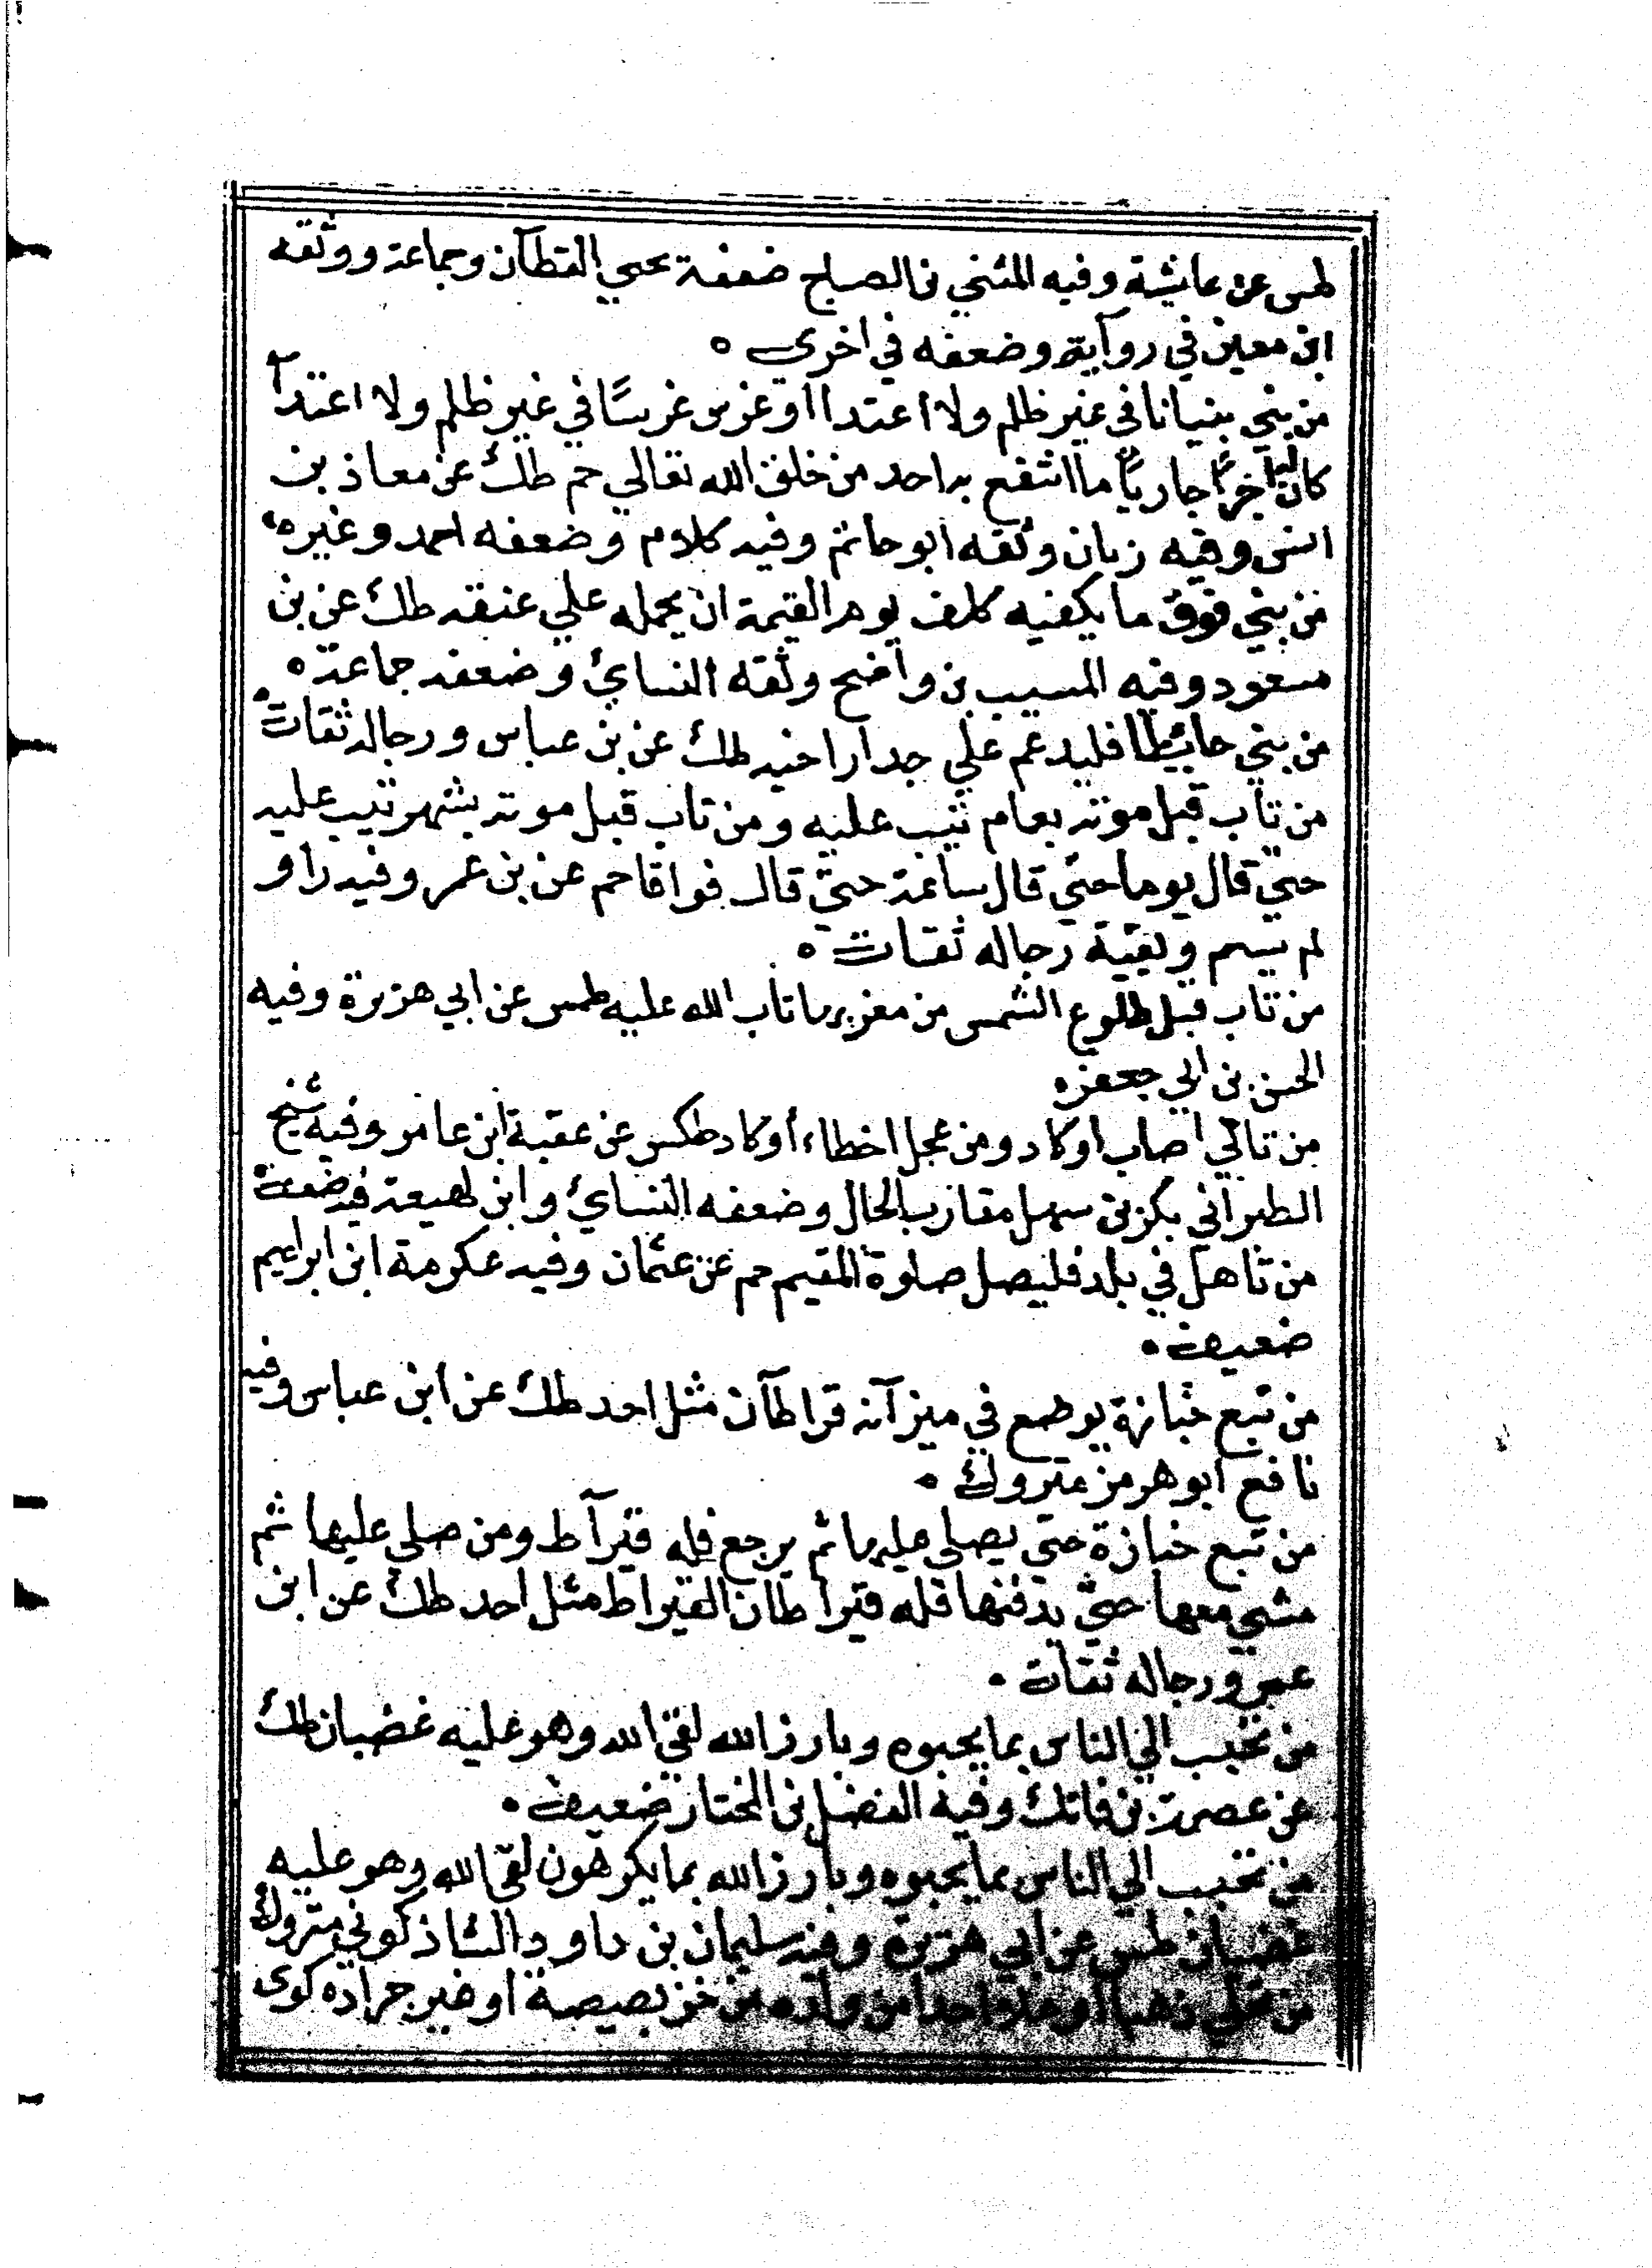 طس عن عايشة وفيه المثني بن الصباح ضعفة يحيي القطآن وجماعة ووثقه
ابن معين في روآية وضعفه في اخري ه
من بني بنيانا في غير ظلم ولا اعتدا او غرس غرسًا في غير ظلم ولا اعتدآ
كان له اجرًا جاريًا ما انتفع به احد من خلق الله تعالي حم طك عن معاذ بن
انس وفيه زبان وثقه ابو حاتم وفيه كلام وضعفه احمد وغيره ه
من بني فوق ما يكفيه كلف يوم القيمة ان يحمله علي عنقه طك عن بن
مسعود وفيه المسيب بن واضح وثقه النسائ وضعفه جماعة ه
من بني حائيطا فليدعم علي جدار اخيه طك عن بن عباس ورجاله ثقات ه
من تاب قبل موته بعام تيب عليه ومن تاب قبل موته بشهر تيب عليه
حتي قال يوما حتي قال ساعة حتي قال فواقا حم عن بن عمر وفيه راو
لم يسم وبقية رجاله ثقات ه
من تاب قبل طلوع الشمس من مغربها تاب الله عليه طس عن ابي هريرة وفيه
الحسن بن ابي جعفر ه
من تاني اصاب او كاد ومن عجل اخطاء او كاد طكس عن عقبة ابن عامر وفيه شيخ
الطبراني بكر بن سهل مقارب الحال وضعفه النسائ وابن لهيعة فيه ضعف ه
من تاهل في بلد فليصل صلوة المقيم حم عن عثمان وفيه عكرمة ابن ابراهيم
ضعيف ه
من تبع جنازة يوضع في ميزآنه قراطآن مثل احد طك عن ابن عباس وفيه
نافع ابو هرمز متروك ه
من تبع جنازة حتي يصلي عليها ثم يرجع فله قيرآط ومن صلي عليها ثم
مشي معها حتي يدفنها فله قيراطان القيراط مثل احد طك عن ابن
عمر ورجاله ثقات ه
من تحبب الي الناس بما يحبوه وبارز الله لقي الله وهو عليه غضبان طك
عن عصمة بن فاتك وفيه الفضل بن المختار ضعيف ه
من تحبب الي الناس بما يحبوه وبارز الله بما يكرهون لقي الله وهو عليه
غضبان طس عن ابي هريرة وفيه سليمان بن داود الشاذكوني متروك
من تحلي ذهبا او حلا احدا من ولده من خربصيصة او عين جراده كوي